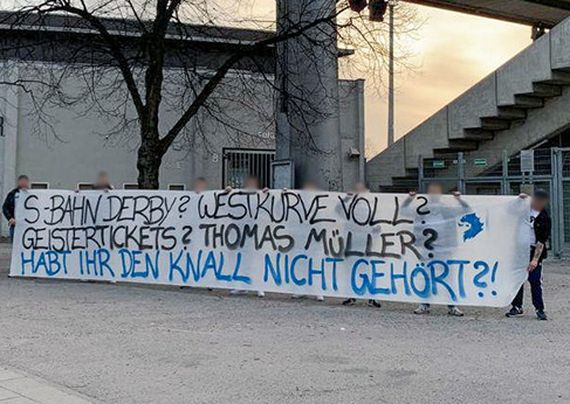 S-BAHN DERBY? WESTKURVE VOLL?
GEISTERTICKETS? THOMAS MÜLLER?
HABT IHR DEN KNALL NICHT GEHÖRT?!